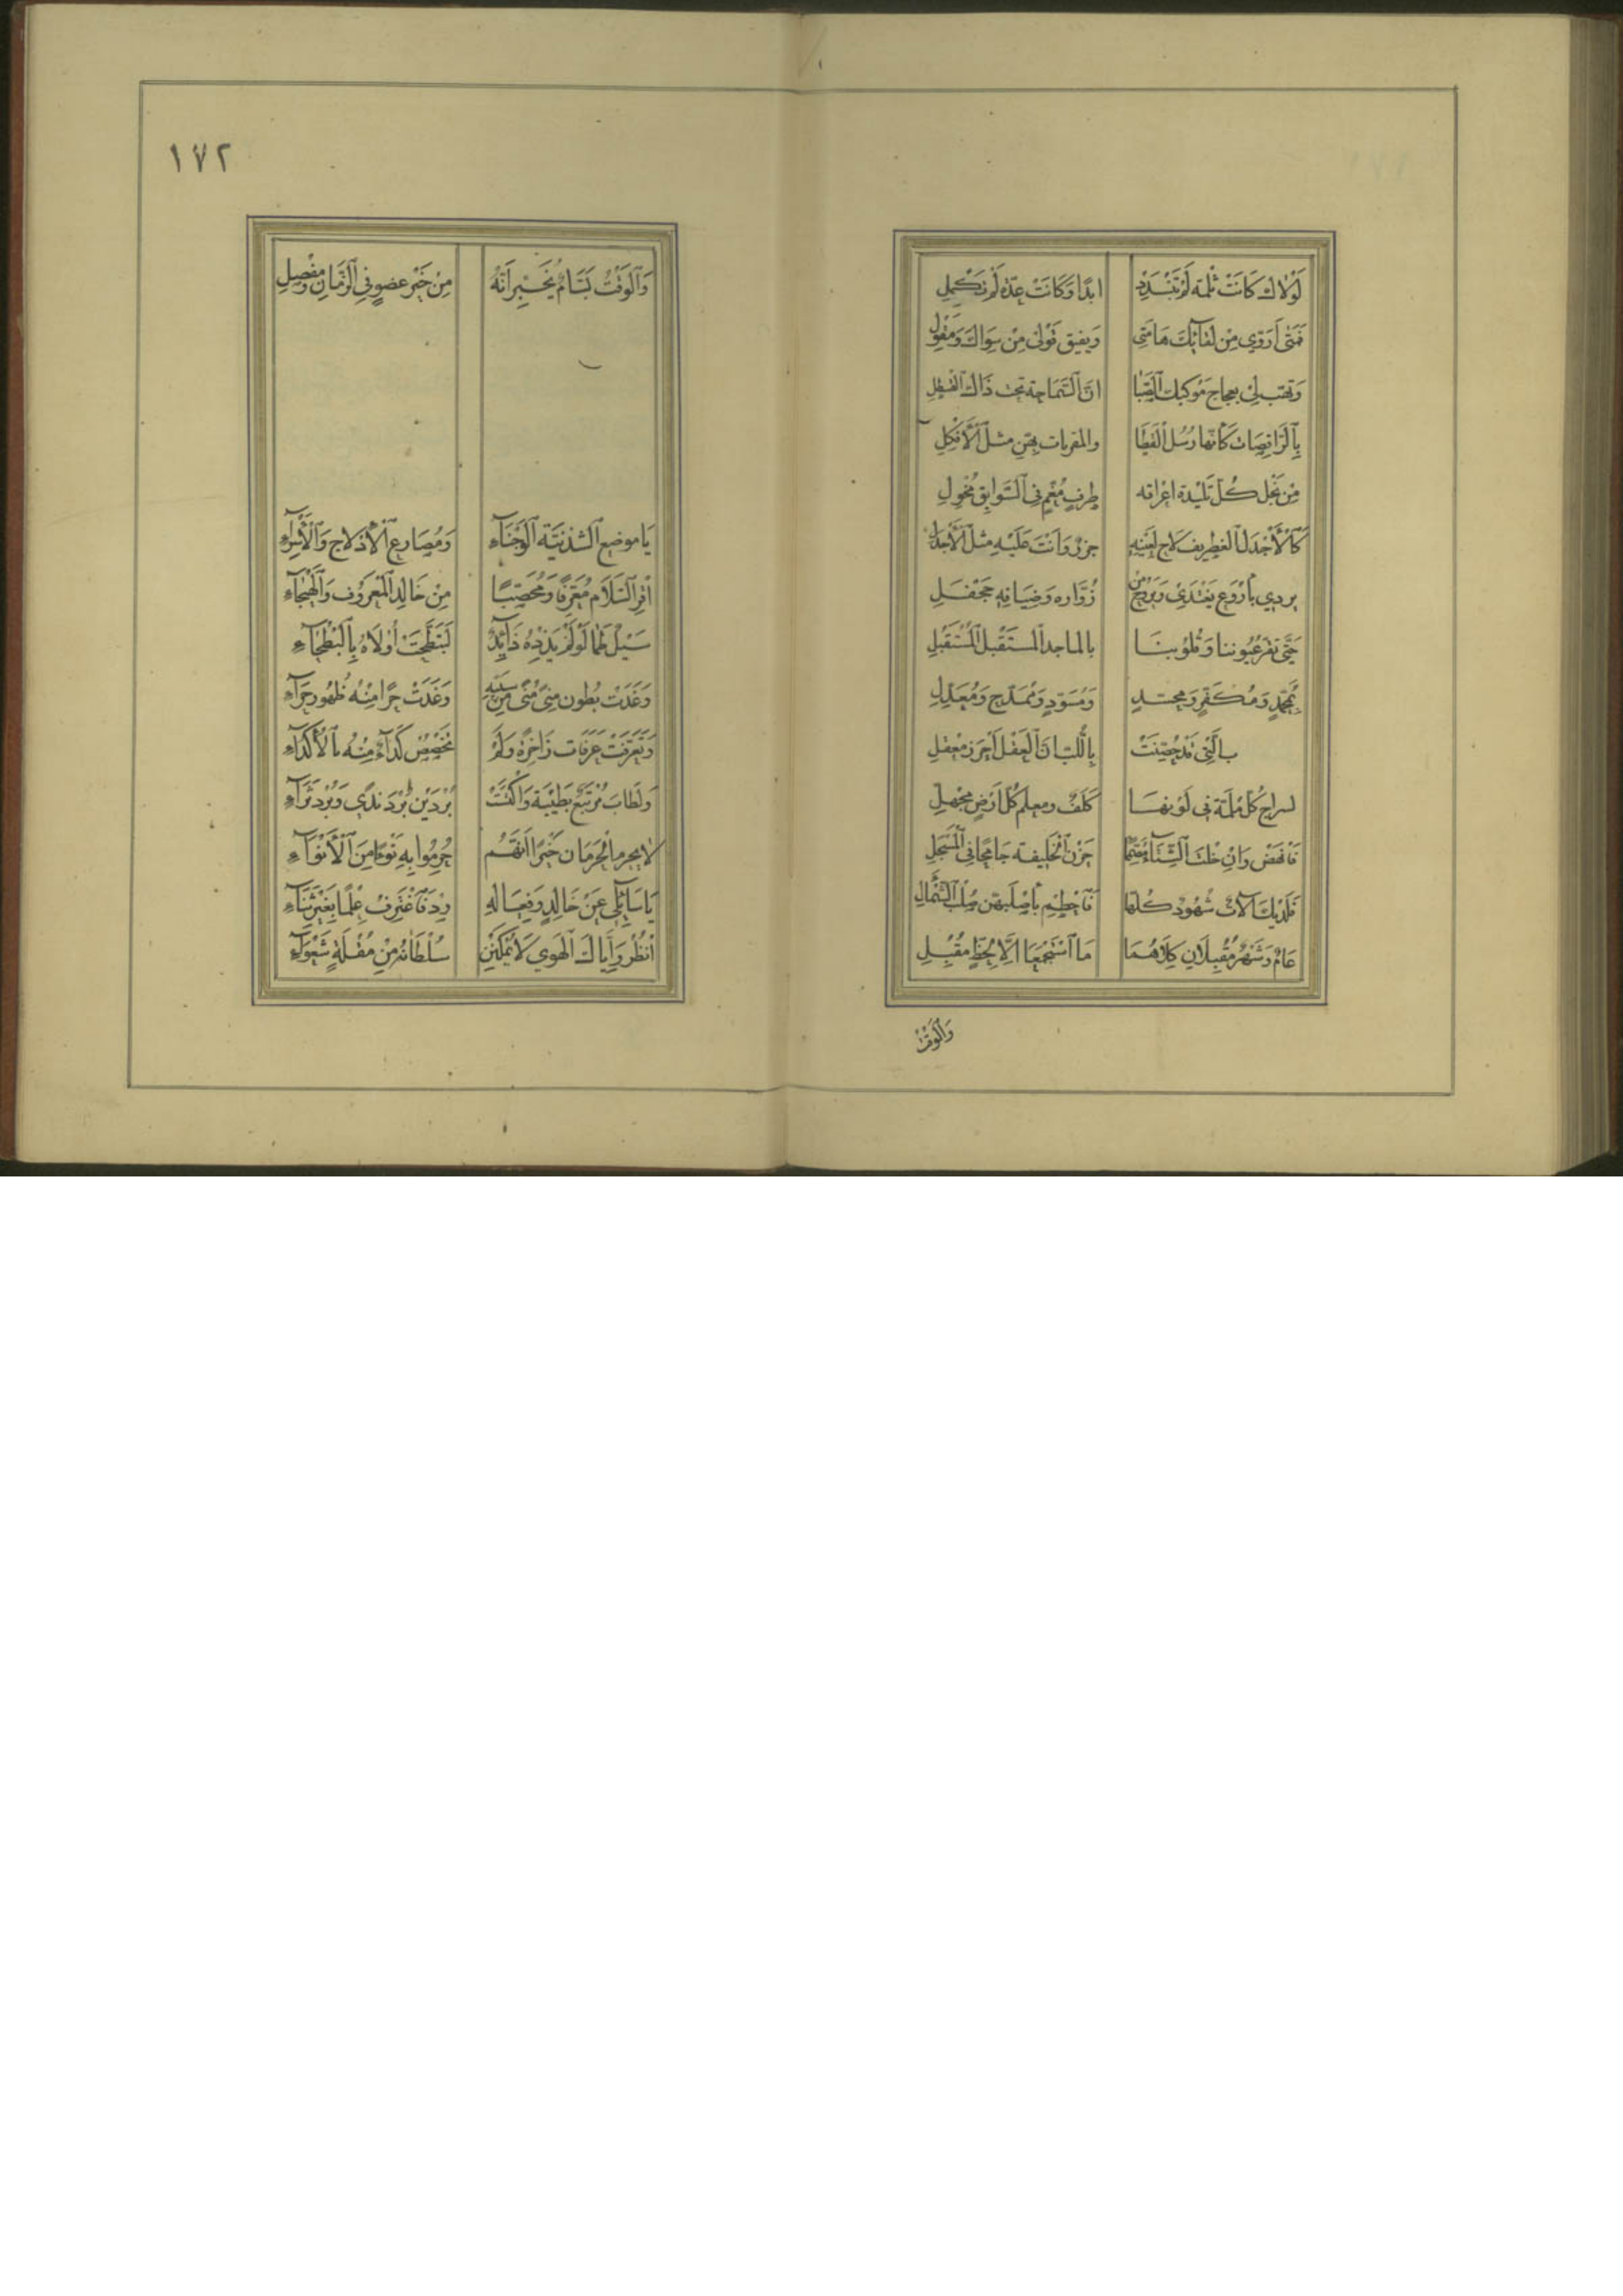 لَوْلَاكَ كَانَتْ ثُلْمَة لَمْ تَنْسَدِدْ ابدًا وَكَانَتْ عِدّة لَمْ تَكْمُلِ
فَمَتَى أَرَوِّي مِنْ لقَآئِكَ هَامَتِي وَيفيق قَوْلي مِنْ سِوَاكَ وَمِقْوَلِي
وَتهب لي بعجاج مَوْكبكَ الصَّبَا انّ السَّمَاحَة تحت ذَاكَ القسطلِ
بِالرَّاقِصَات كَأَنّها رُسُل الْقَطَا والمقربات بهن مثل الْأَفْكَلِ
مِنْ نَجْل كُلّ تَلِيدة اعراقه طِرفٍ مُعَمٍّ في السَّوابِق مُخْوِلِ
كَالْأَجْدَل الغطريف لاح لعينه خزز وَانْتَ عَلَيْهِ مثل الْأَجْدَل
يردي بأَرْوَع يَغْتَدِي وَيَرُوح مِنْ زُوّاره وَضيافه جَحْفَلِ
حَتَّى تقر عُيُوننا وَقُلوُبنَا بالماجد المستَقْبل الْمُسْتَقْبَلِ
بِمُحَمَّدٍ وَمُكَفَّرٍ وَمحسّدٍ وَمُسَوَّدٍ وَمُمَدَّح وَمُعَذَّلِ
بالَّتِي قَدْ حُصِّنَتْ بِاللّبّ انّ الْعَقْل أَحرَز مَعْقلِ
لسراج كُل مُلمّة في لَوْنهَا كَلَفٌ ومعلم كُل أَرْض مَجْهلِ
فَانْهَضْ وَانْ خلتَ الشِّتَآءَ مُصَمِّمًا حَزْن الخليفة جَامحًا في الْمسْحَلِ
فَلَدَيْكَ آلَات شُهُود كُلّهَا فَاحطِمْ بأَصْلَبهن صُلْب الشَّمْأَلِ
عَامٌ وَشَهْرٌ مُقْبِلَانِ كِلَاهُمَا مَا اسْتَجْمَعَا الَّا لِحَظٍّ مُقْبِلِ
وَالْوَقْتُ
١٧٢
وَالْوَقْتُ بَسَّامٌ يُخَبِّر أَنَّهُ مِنْ خَيْر عضوٍ في الزَّمَانِ وَمفْصِلِ
يَا موضِع الشدنيّة الْوَجْنَآءِ وَمُصَارِع الْأَدْلَاج وَالْأَسْرَآءِ
أقرِ السَّلَامَ مُعَرَّفًا وَمُحَصَّبًا مِنْ خَالِد الْمَعْرُوف وَالْهَيْجَآءِ
سَيْلٌ طَمَا لَوْ لَمْ يَذدْهُ ذَآئِدٌ لَتَبَطَّحَتْ أُولَاهُ بِالْبَطْحَآءِ
وَغَدَتْ بُطُون مِنًى مُنًى مِنْ سَيْبِهِ وَغَدَتْ حَرًا مِنْهُ ظُهُور حِرَآءِ
وَتَعَرَّفَتْ عَرَفَات زَاخِرَهُ وَلَمْ يُخْصَصْ كَدَآءٌ مِنْهُ بالْأَكْدَآءِ
وَلَطَابَ مُرْتَبَعٌ بَطَيْبَةَ وَاكْتَسَتْ بُرْدَيْنِ بُرْدَ نَدًى وَبُرْدَ ثَرَآءِ
لَا يحرم الْحَرَمَان خَيْرًا انَّهُمْ حُرِمُوا بِهِ نَوْءًا مِنَ الْأَنْوَآءِ
يَا سَآئِلي عَنْ خَالِدٍ وَفِعَالِهِ رِدْ فَاغْتَرِفْ عِلْمًا بِغَيْرِ رشَآءِ
أُنْظُرْ وَإِيَّاكَ الْهَوى لَا تُمْكِنَنْ سُلْطَانَهُ مِنْ مُقْلَةٍ شَعْوَآءِ